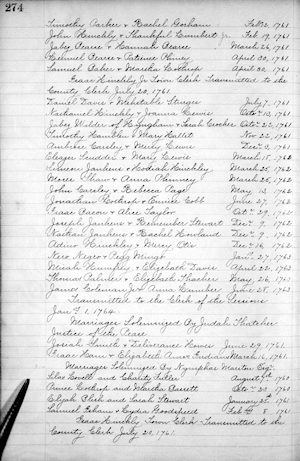 274
Timothy Parker & Rachel Gorham Feb 1761.
John Hinckley & Thankful Jr. Feb 19, 1761.
Jabez Pearce & Hannah Pearce March 26, 1761
Pearce & Patience Phiney April 30, 1761
Samuel Baker & Martha April 30, 1761
Isaac Hinckley Jr Town Clerk Transmitted to the
County Clerk July 20, 1761.
Daniel Davis & Mehetable Sturgis July 7, 1761.
Nathaniel Hinckley & Joanna Lewis Oct 1761.
Jabez Wilder of Hingham & Sarah Crocker Oct 22, 1761.
Timothy Hamblin & Mary Hallet Nov 22, 1761
Ambrose Cursley & Lewis Dec 1761
Eleazer Scudder & Mary Lewis March 18, 1762
Lemon Jenkins & Hinckley March 25, 1762
Shaw & Anna Phinney March 25, 1762
John Cursley & Rebecca Page May 13, 1762
Jonathan Lothrop & Eunice Cobb June 27, 1762
Isaac Bacon & Alice Taylor Oct. 29, 1762
Joseph Jenkins & Stewart Dec 9, 1762
Nathan Jenkins & Rachel Howland Dec 9, 1762
Adino Hinckley & Mercy Otis Dec 16, 1762
Nero Negro & Peggy Jan 27, 1763
Micah Humphrey & Elizebeth Davis April 22, 1763
Palmer & Elizebeth Thacher May 26, 1761
James Coleman Jr & Anna June 28, 1763
Transmitted to the Clerk of the Sessions
Jan 1, 1764.
Marriages Solemnized by Judah Thatcher
Justice of the Peace
Josiah Smith & Deliverance Howes June 29, 1761.
Isaac & Elizabeth Indian March 16, 1761.
Marriages Solemnized by Nymphas Marston Esq.
Silas Lovell and Charity Fuller August 7, 1760
Lothrop and Martha Oct 20 1760
Elijah and Sarah Stewart January 1761
Samuel Isham & Lydia Goodspeed Feb 8 1761
Isaac Hinckley Town Clerk Transmitted to the
County Clerk July 20, 1761.